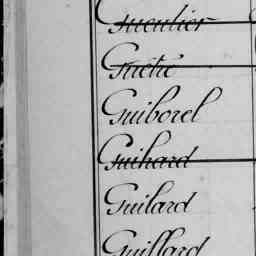 Gueulier
Guétré
Guiborel
Guihard
Guilard
Guillard